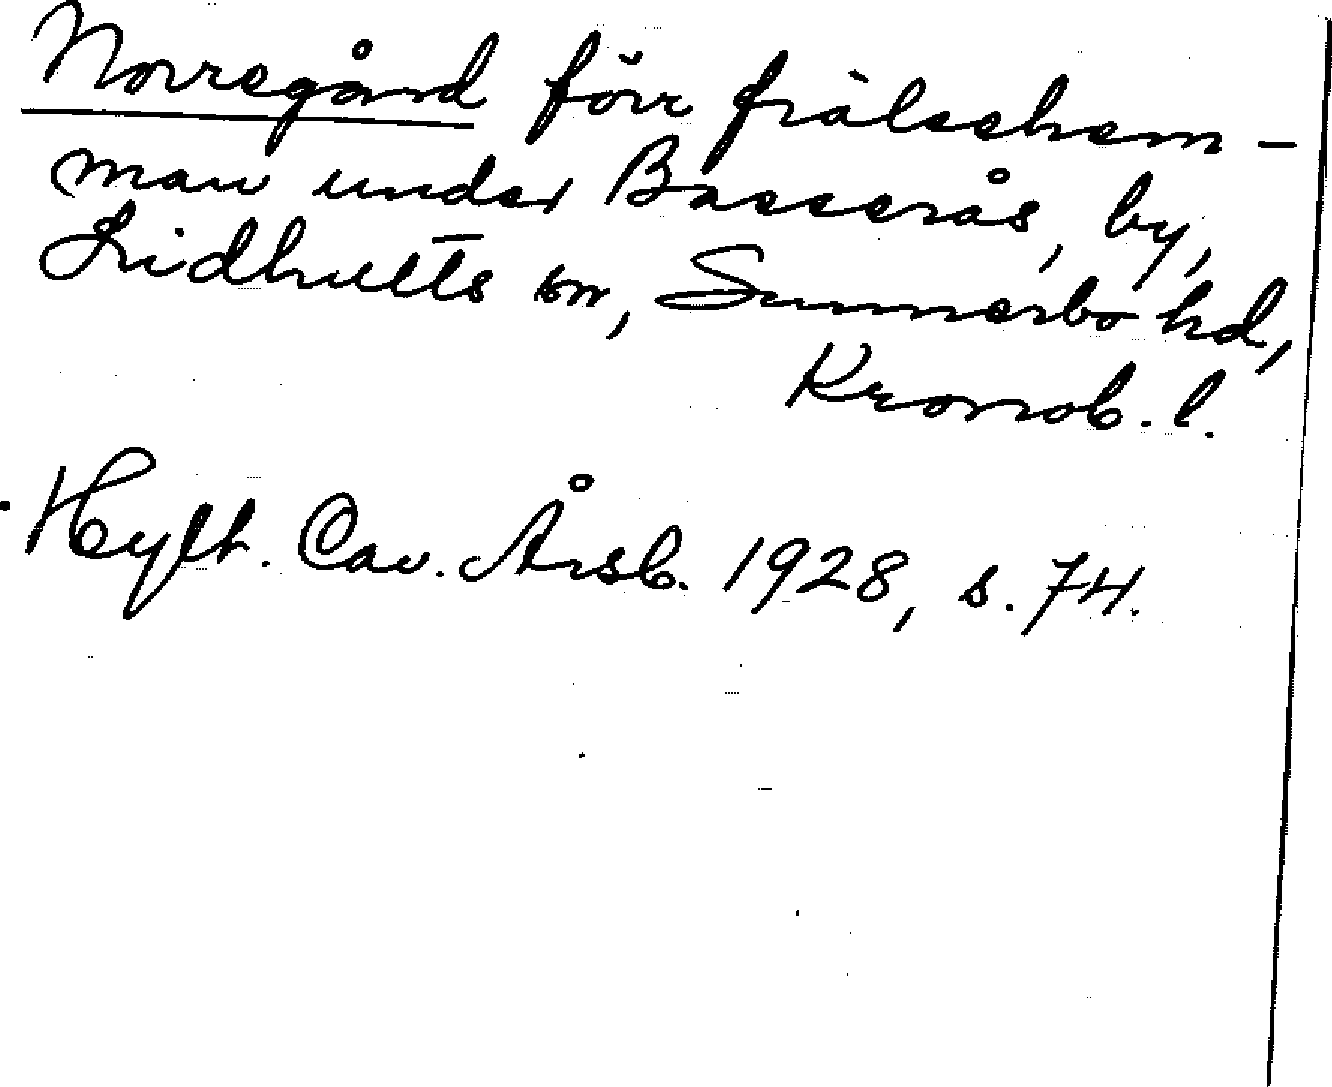 Norregård förr frälsehem-
man under Bassarås, by,
Lidhults sn, Sunnerbo hd,
Kronob. l.
Hylt. Cav. Årsb. 1928, s. 74.